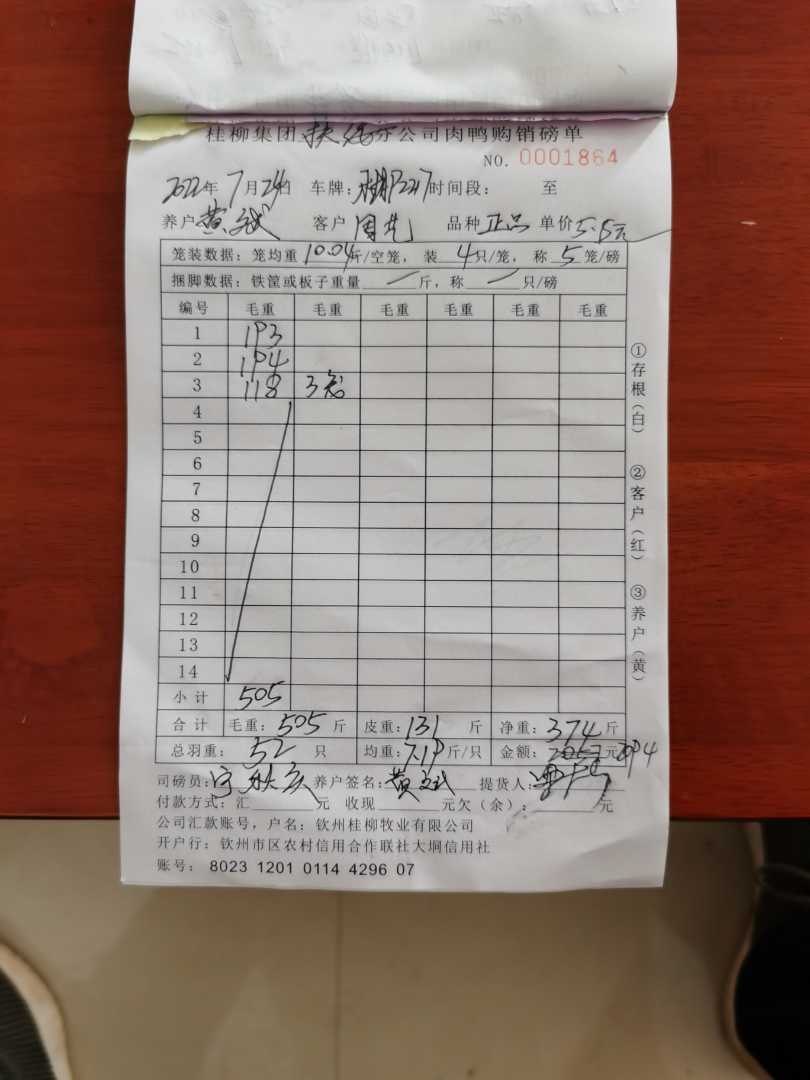 桂柳集团扶绥分公司肉鸭购销磅单
NO. 0001864
2022年7月24日 车牌: 2217 时间段: 至
养户 黄斌 客户 周先 品种 正品 单价 5.5元
笼装数据: 笼均重10.04斤/空笼, 装4只/笼, 称5笼/磅
捆脚数据: 铁筐或板子重量 斤, 称 只/磅
编号 毛重 毛重 毛重 毛重 毛重 毛重
1 193
2 194
3 118 3笼
4
5
6
7
8
9
10
11
12
13
14
小计 505
合计 毛重: 505 斤 皮重: 131 斤 净重: 374 斤
总羽重: 52 只 均重: 7.19 斤/只 金额: 2057元
司磅员: 养户签名: 黄斌 提货人:
付款方式: 汇 元 收现 元欠(余): 元
公司汇款账号, 户名: 钦州桂柳牧业有限公司
开户行: 钦州市区农村信用合作联社大垌信用社
账号: 8023 1201 0114 4296 07
①存根(白)
②客户(红)
③养户(黄)